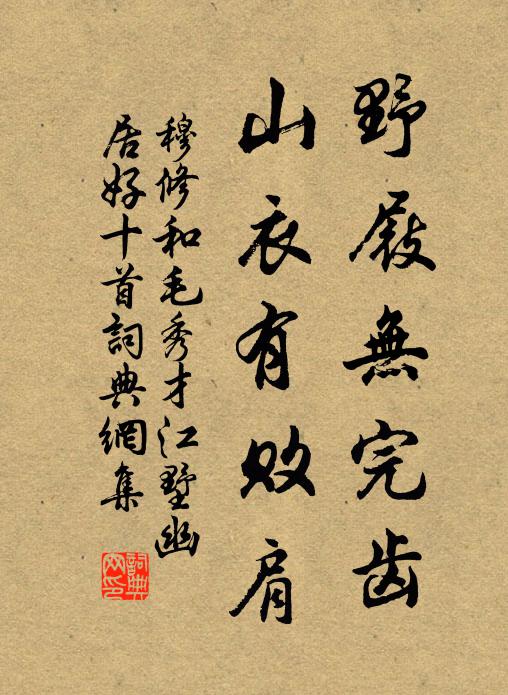 野屐無完齿
山衣有败肩
穆修和毛秀才江墅幽
居好十首詞典網集
詞典
网印